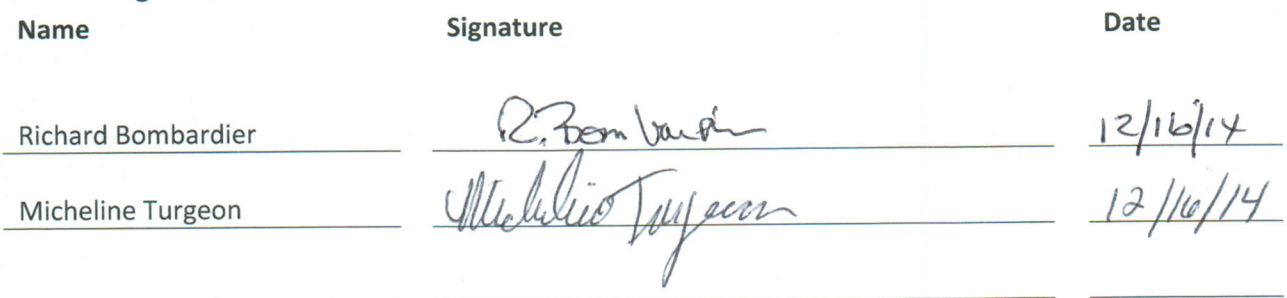 Name Signature Date
Richard Bombardier R. Bombardier 12/16/14
Micheline Turgeon Micheline Turgeon 12/16/14